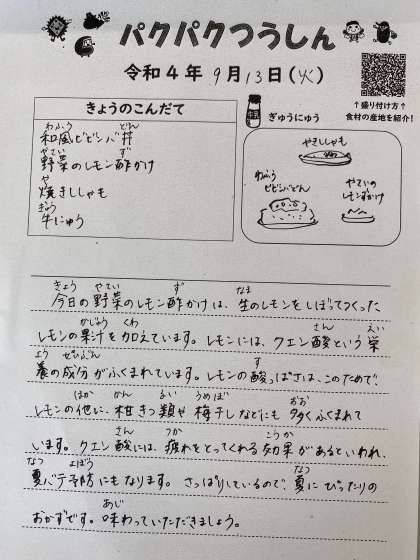 パクパクつうしん
令和4年 9月13日(火)
↑盛り付け方↑
食材の産地を紹介!
きょうのこんだて
わふう どん
和風ビビンバ丼
やさい ず
野菜のレモン酢かけ
や
焼きししゃも
ぎゅう
牛にゅう
牛乳
ぎゅうにゅう
やきししゃも
わふう
ビビンバどん
やさいの
レモンずかけ
きょう やさい ず なま
今日の野菜のレモン酢かけは、生のレモンをしぼってつくった
かじゅう くわ
レモンの果汁を加えています。レモンには、クエン酸という栄
さん えい
養の成分がふくまれています。レモンの酸っぱさは、このためで、
よう せいぶん す
レモンの他に、柑きつ類や梅干しなどにも多くふくまれて
ほか かん るい うめぼ おお
います。クエン酸には、疲れをとってくれる効果があるといわれ、
さん つか こうか
夏バテ予防にもなります。さっぱりしているので、夏にぴったりの
なつ よぼう なつ
おかずです。味わっていただきましょう。
あじ